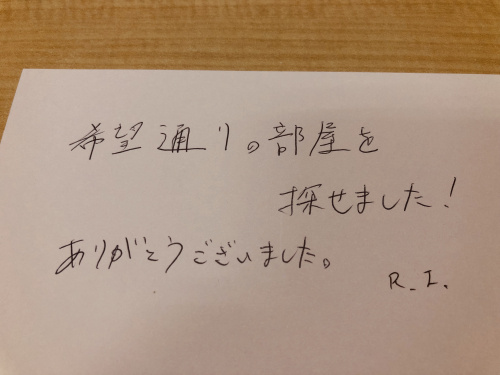 希望通りの部屋を
探せました!
ありがとうございました。
R.I.